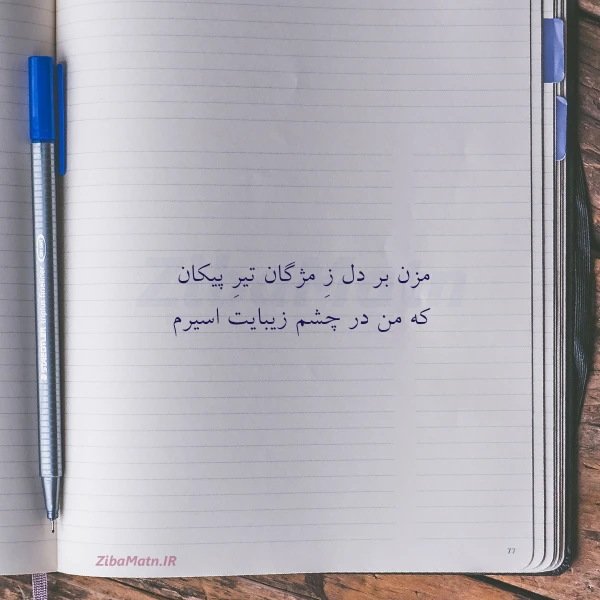 مزن بر دل زِ مژگان تیرِ پیکان
که من در چشم زیبایت اسیرم
77
ZibaMatn.IR